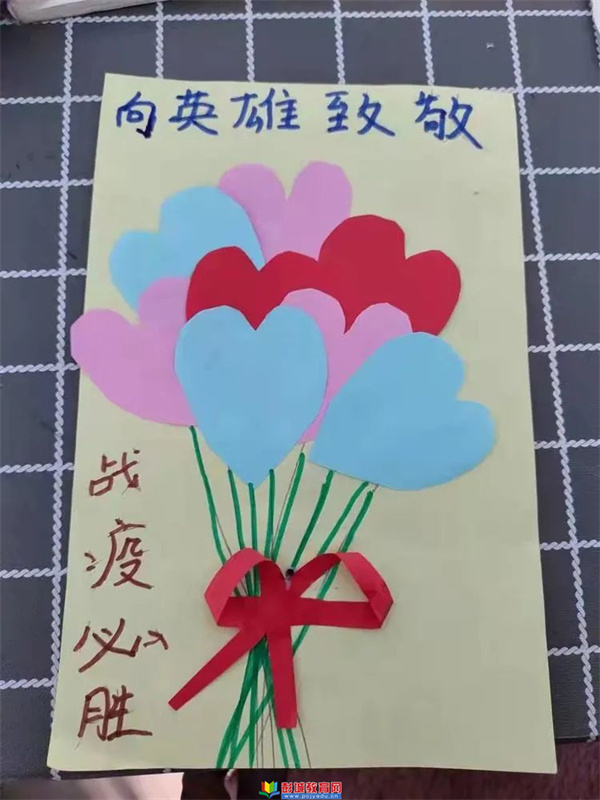 向英雄致敬
战
疫
必
胜
彭城教育网
www.pcjyedu.cn